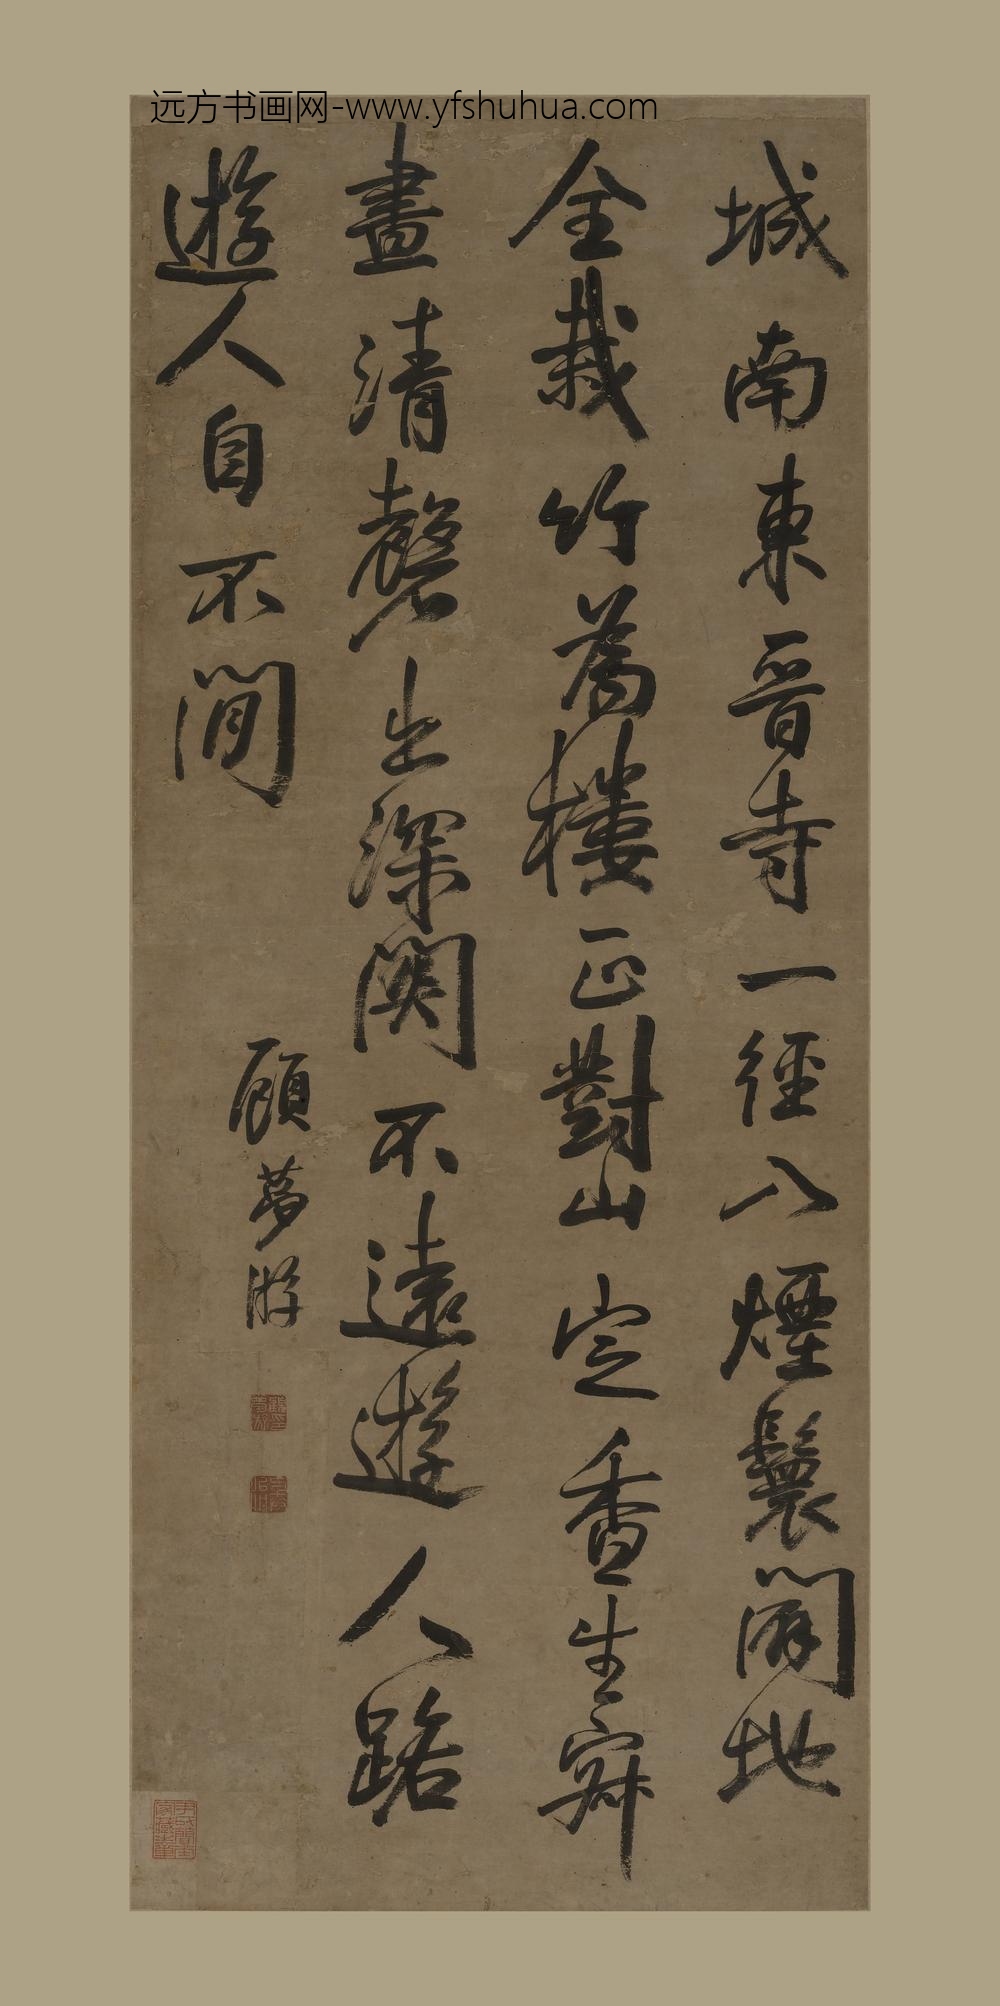 远方书画网-www.yfshuhua.com
城南東晉寺一徑入煙鬟開地
全栽竹為樓正對山定香生
晝清磬出深關不遠遊人路
遊人自不閒
顧夢游